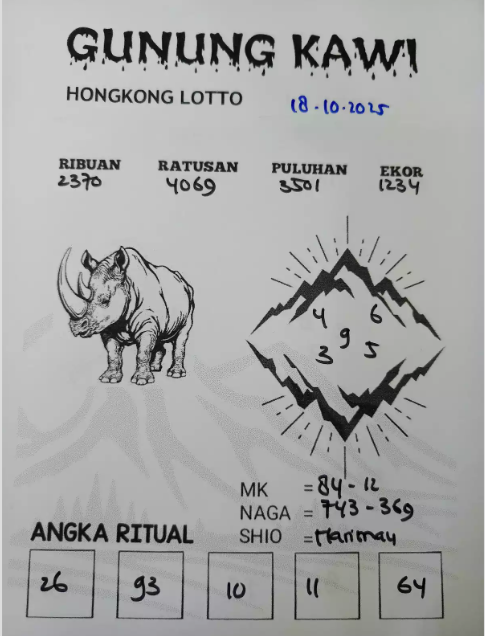 GUNUNG KAWI
HONGKONG LOTTO 18-10-2025
RIBUAN RATUSAN PULUHAN EKOR
2370 4069 3501 1234
4 6
9
3 5
MK = 84 - 12
NAGA = 743 - 369
SHIO = Harimau
ANGKA RITUAL
26 93 10 11 64